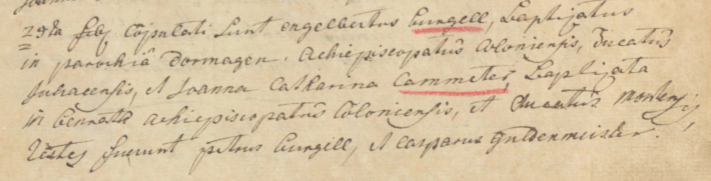 2da feb: Copulati sunt engelbertus Cürgell, baptizatus
in parochiâ Dormagen. Achiepiscopatûs Coloniensis, Ducatûs
Juliacensis, et Joanna Catharina Cammeter, baptizata
in bennrath achiepiscopatûs Coloniensis, et Ducatûs montensis
testes fuerunt petrus Cürgell, et casparus güldenmeister.